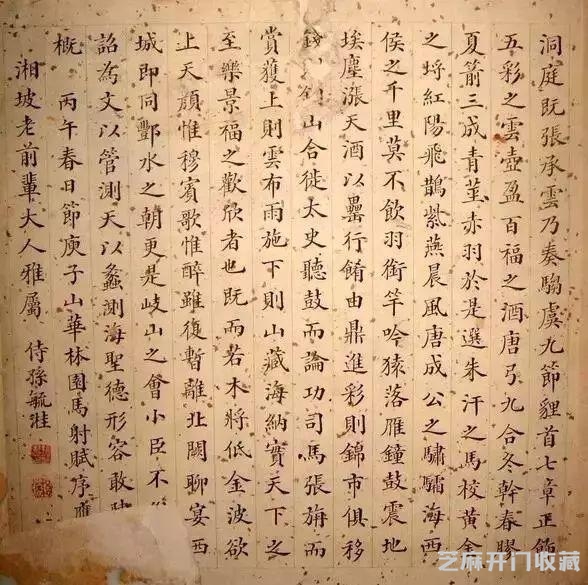 洞庭既張承雲乃奏騶虞九節貍首七章正飾
五彩之雲壺盈百福之酒唐弓九合冬幹春膠
夏箭三成青莖赤羽於是選朱汗之馬校黃金
之埒紅陽飛鵲紫燕晨風唐成公之驌驦海西
侯之千里莫不飲羽銜竿吟猿落雁鐘鼓震地
埃塵漲天酒以罍行餚由鼎進彩則錦市俱移
錢山合徙太史聽鼓而論功司馬張旃而
賞獲上則雲布雨施下則山藏海納實天下之
至樂景福之歡欣者也既而若木將低金波欲
上天顏惟穆賓歌惟醉雖復暫離北闕聊宴西
城即同酆水之朝更是岐山之會小臣不
詔為文以管測天以蠡測海聖德形容敢
概 丙午春日節庾子山華林園馬射賦序應
湘坡老前輩大人雅屬 侍孫毓溎
芝麻开门收藏